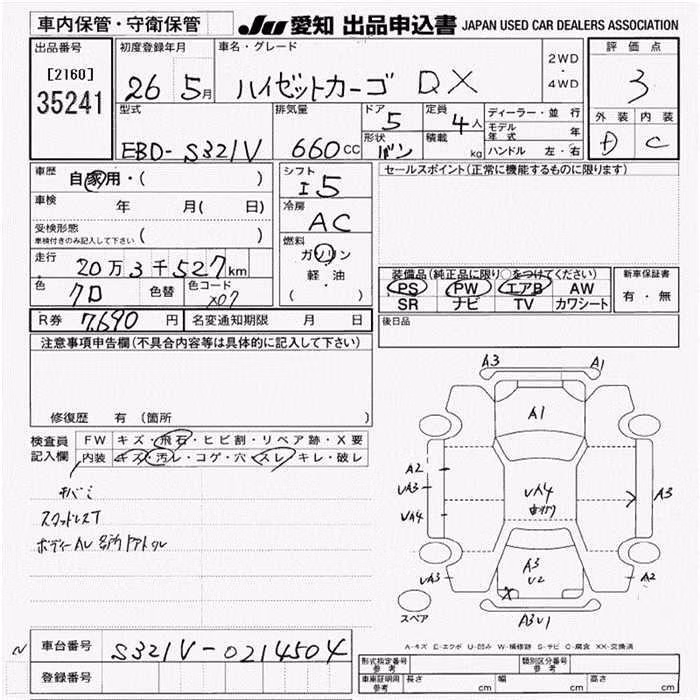 車内保管・守衛保管
JU 愛知 出品申込書 JAPAN USED CAR DEALERS ASSOCIATION
出品番号
[2160]
35241
初度登録年月
26 5月
車名・グレード
ハイゼットカーゴ DX
2WD
・
4WD
評価点
3
外装 内装
D C
型式
EBD-S321V
排気量
660cc
ドア
5
形状
バン
定員
4人
積載
kg
ディーラー・並行
モデル年式 年
ハンドル 左・右
車歴 自家用・( )
車検 年 月( 日)
受検形態
車検付きのみ記入して下さい ( )
走行 20万3千527km
色 クロ 色替 色コード X07
シフト
I5
冷房
AC
燃料
ガソリン
・
軽油
( )
セールスポイント(正常に機能するものに限ります)
装備品(純正品に限り○をつけてください)
PS PW エアB AW
SR ナビ TV カワシート
新車保証書
有・無
R券 7,690円 名変通知期限 月 日
後日品
注意事項申告欄(不具合内容等は具体的に記入して下さい)
修復歴 有(箇所
検査員
記入欄
FW キズ・飛石・ヒビ割・リペア跡・X要
内装 キズ・汚レ・コゲ・穴・スレ・キレ・破レ
スタッドレスT
A3 A1
A1
A2
UA3
UA4
UA4
A3
A3
U2
X
UA3
A2
A3U1
スペア
A-キズ E-エクボ U-凹み W-補修跡 S-サビ C-腐食 XX-交換済
車台番号 S321V-0214504
登録番号
形式指定番号
参考
類別区分番号
参考
車庫証明用
参考
長さ cm 幅 cm 高さ cm